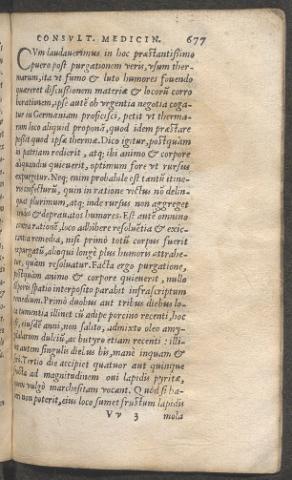 CONSVLT. MEDICIN. 677
CVm laudauerimus in hoc præstantissimo
puero post purgationem veris, vsum ther-
marum, ita vt fumo & luto humores fouendo
quæreret discussionem materiæ & locorū corro
borationem, ipse autē ob vrgentia negotia coga-
tur in Germaniam proficisci, petit vt therma-
rum loco aliquid proponā, quod idem præstare
possit quod ipsæ thermæ. Dico igitur, postquam
in patriam redierit, atq; ibi animo & corpore
aliquandiu quieuerit, optimum fore vt rursus
expurgetur. Neq; enim probabile est tantū itine-
ris confecturū, quin in ratione victus nō delin-
quat plurimum, atq; inde rursus non aggreget
& deprauatos humores. Est autē omnino
ratione, loco adhibere resoluētia & exic-
cantia remedia, nisi primò totū corpus fuerit
expurgatū, alioqui longè plus humoris attrahe-
tur, quàm resoluatur. Facta ergo purgatione,
postquàm animo & corpore quieuerit, nullo
spatio interposito parabit infrascriptum
remedium. Primò duobus aut tribus diebus lo-
ca tumentia illinet cū adipe porcino recenti, hoc
est, eiusdē anni, non salito, admixto oleo amy-
gdalarum dulciū, ac butyro etiam recenti: illi-
net autem singulis diebus bis, manè inquam &
Tertio die accipiet quatuor aut quinque
ad magnitudinem oui lapidis pyritæ,
quem vulgò marchesitam vocant. Quod si ha-
beri non poterit, eius loco sumet frustum lapidis
Vv 3 mola